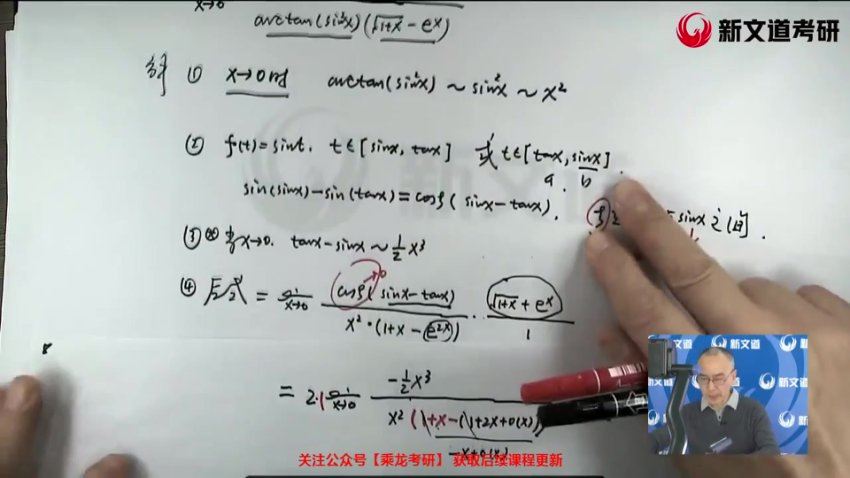 x→0
arctan(sin²x)(√1+x - eˣ)
新文道考研
解 ① x→0时 arctan(sin²x) ~ sin²x ~ x²
② f(t)=sint, t∈[sinx, tanx] 或 t∈[tanx, sinx].
a, b
sin(sinx)-sin(tanx)=cosξ(sinx-tanx). ξ sinx之间.
③ 当x→0. tanx-sinx ~ ½x³
④ 原式 = lim x→0 cosξ(sinx-tanx) / x²·(1+x-(e²ˣ)) · √1+x + eˣ / 1
0
= 2·1 lim x→0 -½x³ / x²(1+x-(1+2x+o(x)))
-x+o(x)
新文道
新文道考研
关注公众号【乘龙考研】 获取后续课程更新